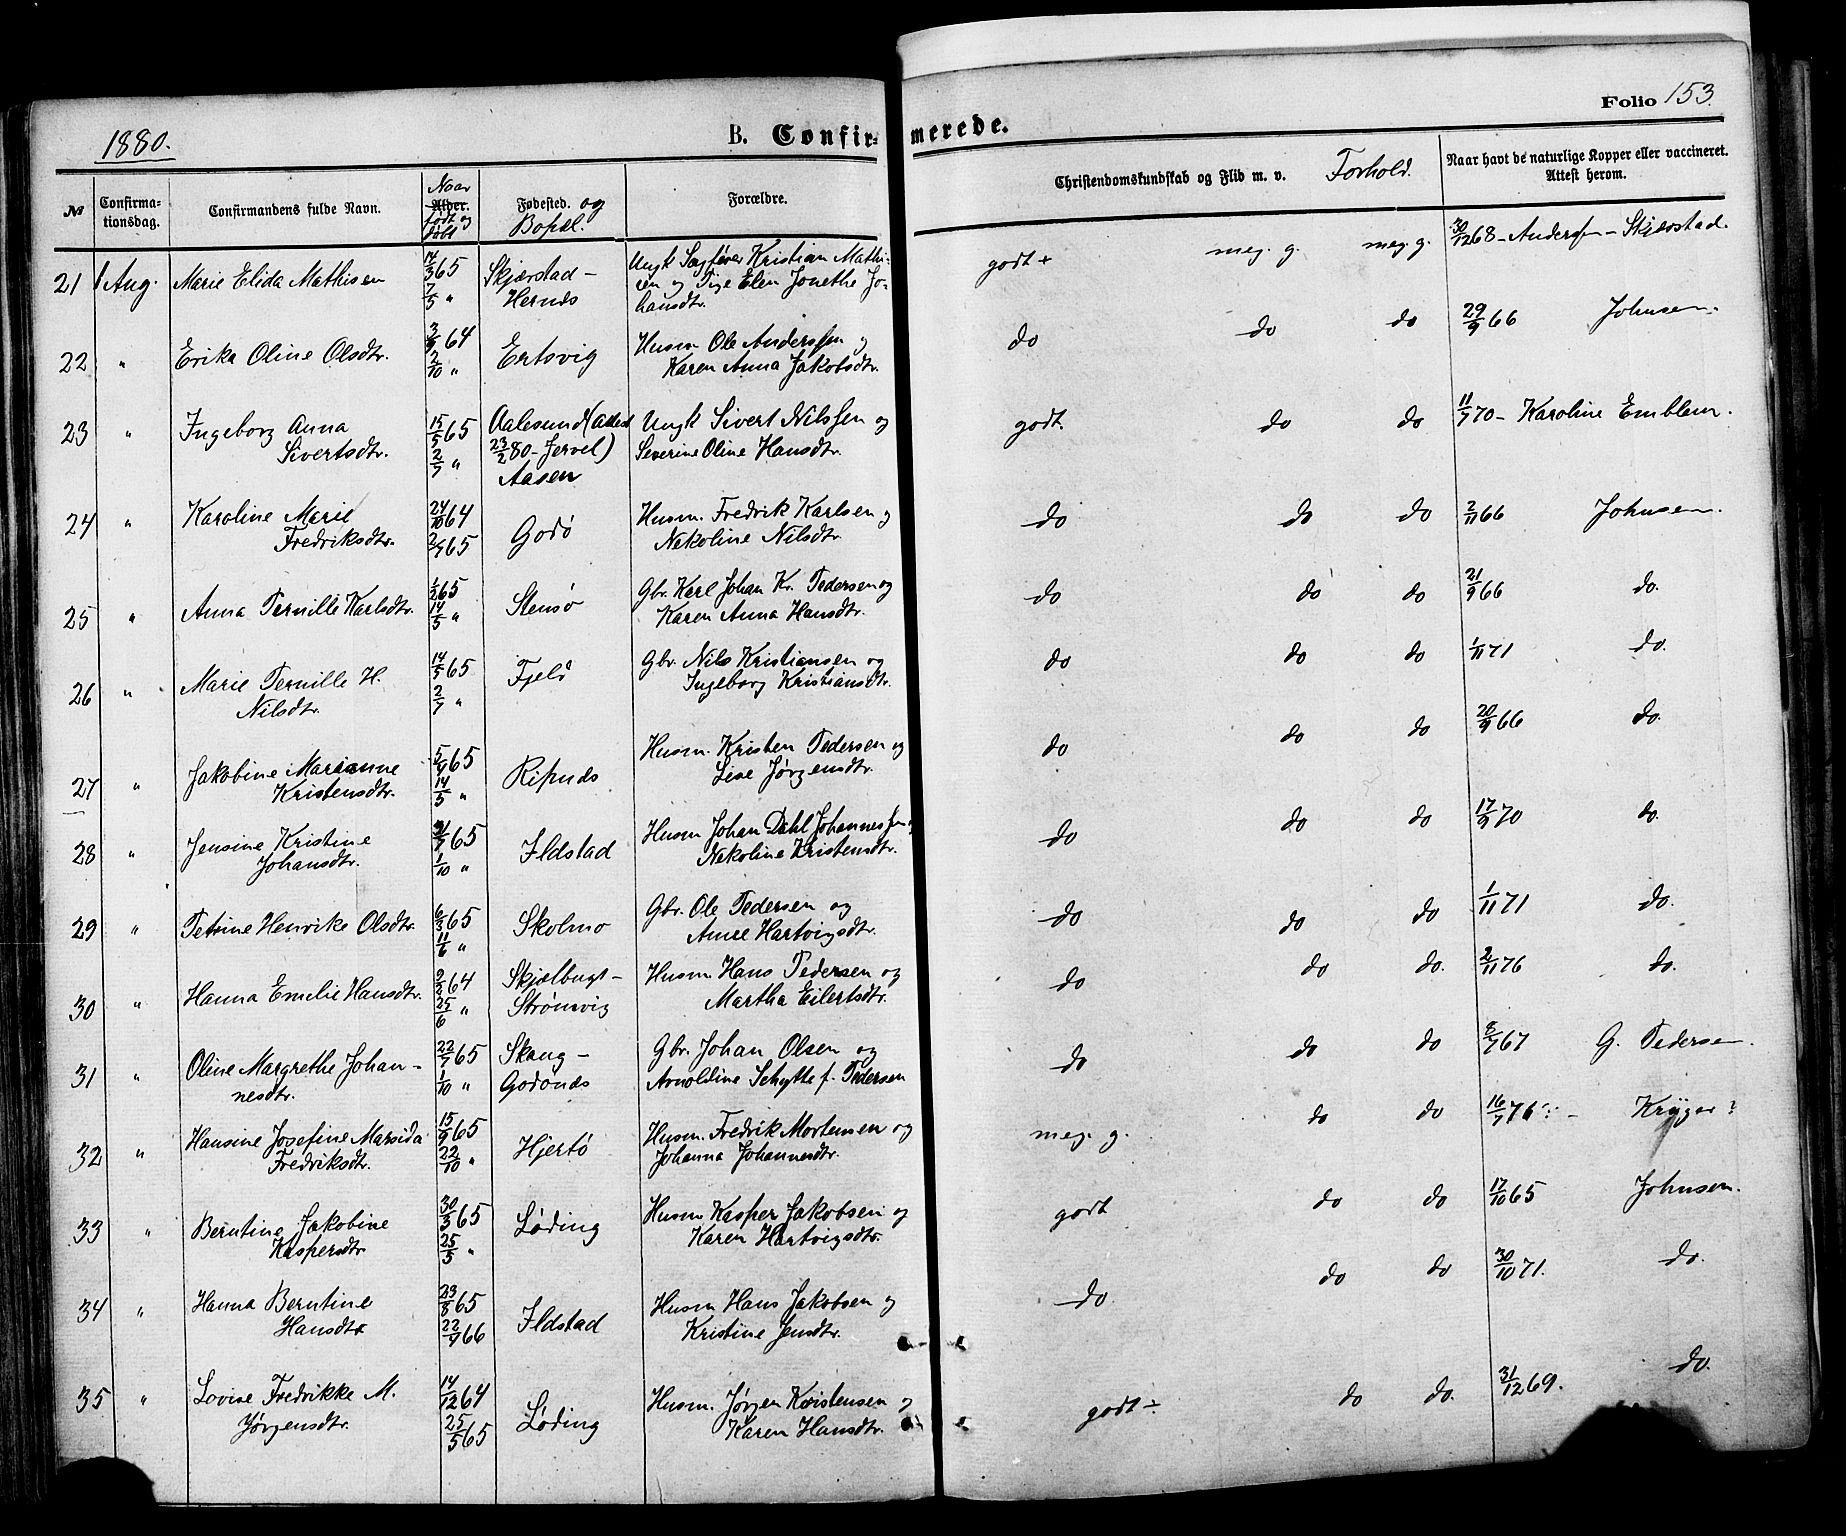 1880.
B. Confirmerede.
Folio 153.
№
Confirmationsdag.
Confirmandens fulde Navn.
Naar Alder. født og døbt
Fødested. og Bopæl.
Forældre.
Christendomskundskab og Flid m. v. Forhold.
Naar havt de naturlige Kopper eller vaccineret. Attest herom.
21 1 Aug. Marie Elida Mathisen 14/3 65 Skjærstad- Ungk Sagfører Kristian Mathi- godt+ meg. g. meg. g. 30/12 68 - Anderssen - Skjærstad.
7/5 " Hernes sen og Pige Elen Jonethe Jo-
hansdtr.
22 " Erika Oline Olsdtr. 64 Ertsvig Husm Ole Anderssen og do do do 29/9 66 Johnsen.
2/10 " Karen Anna Jakobsdtr.
23 " Ingeborg Anna 15/5 65 Aalesund (Attest Ungk Sivert Nilssen og godt. do do 11/7 70 - Karoline Emblem.
Sivertsdtr. 2/7 " 23/2 80 - Jervel) Severine Oline Hansdtr.
Aasen
24 " Karoline Marie 24/10 64 Godø Husm. Fredrik Karlsen og do do do 2/11 66 Johnsen.
Fredriksdtr. 65 Nekoline Nilsdtr.
25 " Anna Pernille Karlsdtr. 65 Stensø Gbr. Karl Johan Kr. Pedersen og do do do 21/9 66 do.
14/5 " Karen Anna Hansdtr.
26 " Marie Pernille H. 14/5 65 Fjeld Gbr. Nils Kristiansen og do do do 1/11 71 do.
Nilsdtr. 2/7 " Ingeborg Kristiansdtr.
27 " Jakobine Marianne 65 Ripnes Husm. Kristen Pedersen og do do do 20/9 66 do.
Kristensdtr. 14/5 " Lise Jørgensdtr.
28 " Jensine Kristine 65 Ildstad Husm Johan Dahl Johannessen do do do 17/9 70 do.
Johansdtr. 1/10 " Nekoline Kristensdtr.
29 " Petrine Henrike Olsdtr. 6/3 65 Skolmo Gbr. Ole Pedersen og do do do 1/11 71 do.
11/6 " Anne Hartvigsdtr.
30 " Hanna Emelie Hansdtr. 64 Skjelbugt- Husm Hans Pedersen og do do do. 2/11 76 do.
25/6 " Strømvig Martha Eilertsdtr.
31 " Oline Margrethe Johan- 22/7 65 Skaug- Gbr. Johan Olsen og do do do 8/7 67 G. Pedersen.
nesdtr. 1/10 " Godønes Arnoldine Schytte f. Pedersen
32 " Hansine Josefine Marsida 15/9 65 Hjertø Husm. Fredrik Mortensen og meg. g. do do 16/7 76 - Krüger?
Fredriksdtr. 22/10 " Johanna Johannesdtr.
33 " Berntine Jakobine 30/3 65 Løding Husm Kasper Jakobsen og godt do do 17/10 65 Johnsen.
Kaspersdtr 25/5 " Karen Hartvigsdtr.
34 " Hanna Berntine 23/8 65 Ildstad Husm Hans Jakobsen og do. do do 30/10 71. do.
Hansdtr 66 Kristine Jensdtr.
35 " Lovise Fredrikke M. 14/12 64 Løding Husm. Jørgen Kristensen og godt ÷ do do. 31/12 69. do.
Jørgensdtr. 25/5 65 Karen Hansdtr.